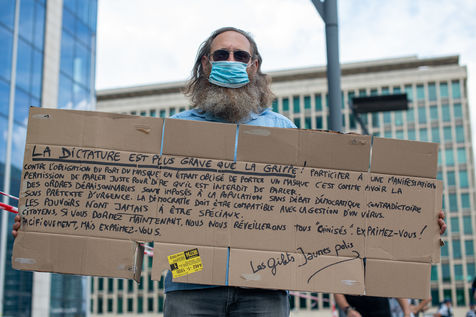 LA DICTATURE EST PLUS GRAVE QUE LA GRIPPE! PARTICIPER À UNE MANIFESTATION
CONTRE L'OBLIGATION DU PORT DU MASQUE EN ÉTANT OBLIGÉ DE PORTER UN MASQUE C'EST COMME AVOIR LA
PERMISSION DE PARLER JUSTE POUR DIRE QU'IL EST INTERDIT DE PARLER.
DES ORDRES DÉRAISONNABLES SONT IMPOSÉS À LA POPULATION SANS DÉBAT DÉMOCRATIQUE CONTRADICTOIRE
SOUS PRÉTEXTE D'URGENCE. LA DÉMOCRATIE DOIT ÊTRE COMPATIBLE AVEC LA GESTION D'UN VIRUS.
LES POUVOIRS N'ONT JAMAIS À ÊTRE SPÉCIAUX.
CITOYENS, SI VOUS DORMEZ MAINTENANT, NOUS NOUS RÉVEILLERONS TOUS "CHINISÉS". EXPRIMEZ-VOUS!
PACIFIQUEMENT, MAIS EXPRIMEZ-VOUS!
Les Gilets Jaunes